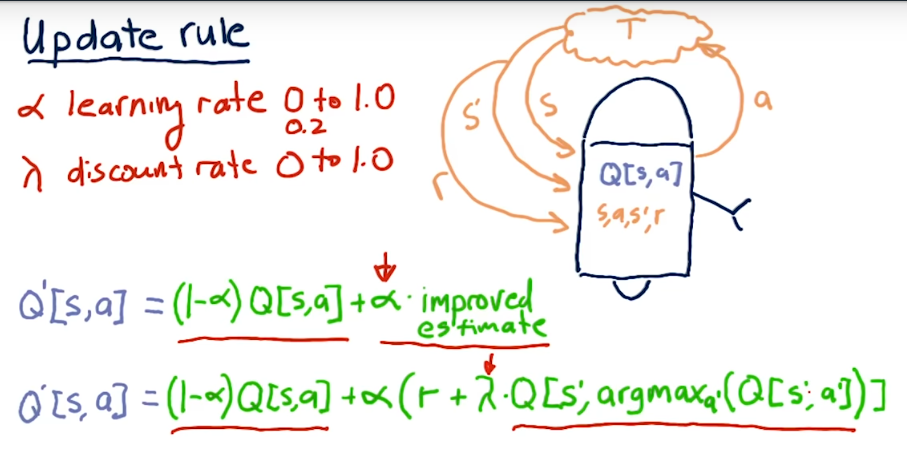 Update rule
α learning rate 0 to 1.0
0.2
λ discount rate 0 to 1.0
T
s'
s
a
r
Q[s,a]
s,a,s',r
Q'[s,a] = (1-α) Q[s,a] + α · improved
estimate
Q'[s,a] = (1-α) Q[s,a] + α (r + λ · Q[s', argmaxa'(Q[s',a'])]